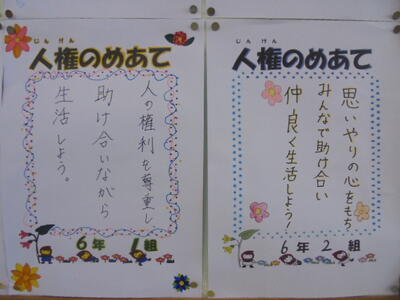 じん けん
人権のめあて
人の権利を尊重し
助け合いながら
生活しよう。
6年 1組
じん けん
人権のめあて
思いやりの心をもち
みんなで助け合い
仲良く生活しよう!
6年 2組